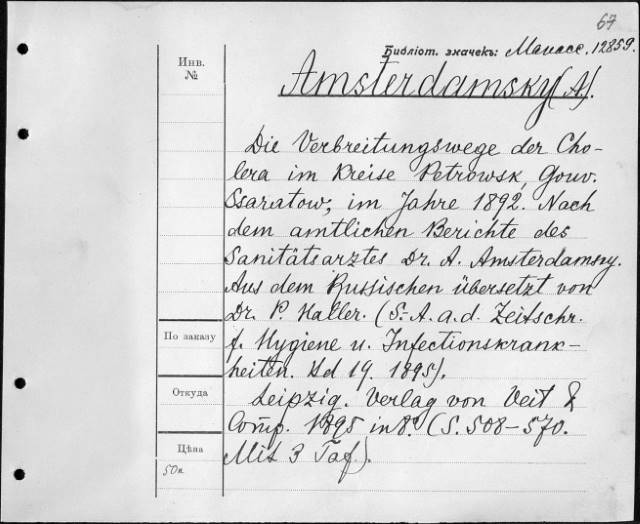 67
Библіот. значекъ: Манасс. 12859.
Инв.
№
Amsterdamsky (A).
Die Verbreitungswege der Cho-
lera im Kreise Petrowsk, Gouv.
Ssaratow, im Jahre 1892. Nach
dem amtlichen Berichte des
Sanitätsarztes Dr. A. Amsterdamsky.
Aus dem Russischen übersetzt von
Dr. P. Haller. (S.-A. a. d. Zeitschr.
f. Hygiene u. Infectionskrank-
heiten. Bd 19. 1895).
Leipzig. Verlag von Veit &
Comp. 1895 in 8º. (S. 508–570.
Mit 3 Taf.).
По заказу
Откуда
Цѣна
50к.